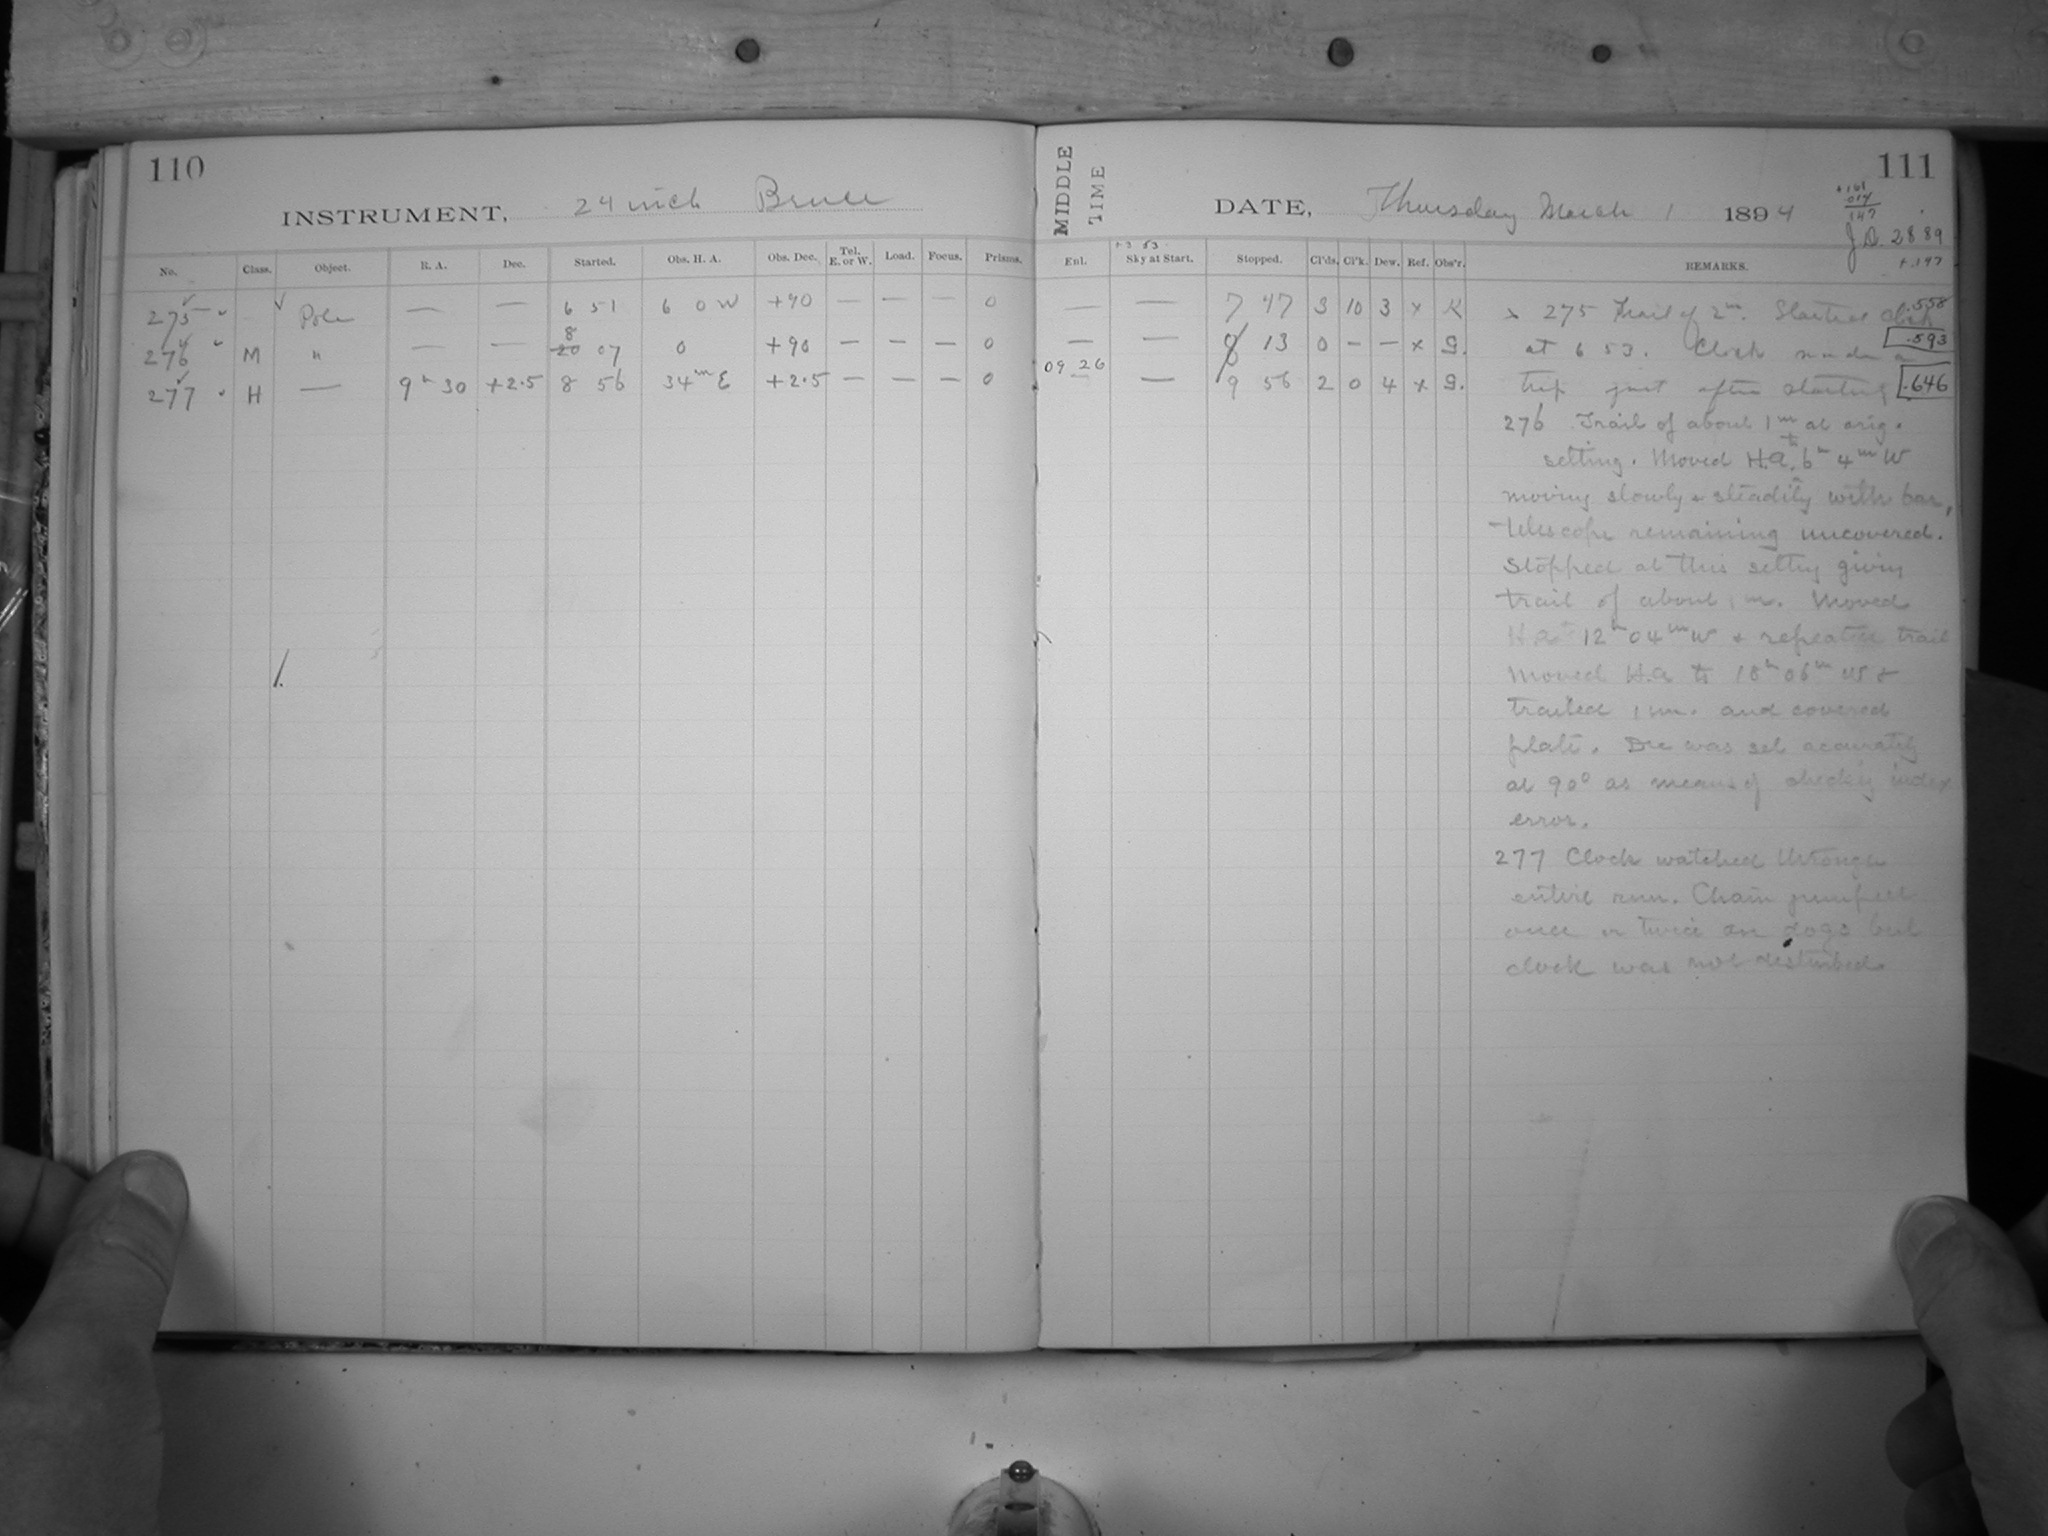 110
INSTRUMENT, 24 inch Bruce
No. Class. Object. R. A. Dec. Started. Obs. H. A. Obs. Dec. Tel. E. or W. Load. Focus. Prisms.
275 Pole — — 6 51 6 0 W +90 — — — 0
276 M " — — 8 20 07 0 +90 — — — 0
277 H — 9h 30 +2.5 8 56 34m E +2.5 — — — 0
111
MIDDLE TIME
DATE, Thursday March 1 1894
+161
014
147
J.D. 2889
+.197
+3 53
Enl. Sky at Start. Stopped. Cl'ds. Cl'k. Dew. Ref. Obs'r. REMARKS.
— — 7 47 3 10 3 x K
— — 8 13 0 — — x G.
09 26 — 9 56 2 0 4 x G.
.558
.593
.646
x 275 Trail of 2m. Started clock
at 6 53. Clock made a
trip just after starting
276 Trail of about 1m at orig.
setting. Moved H.a. to 6h 4m W
moving slowly & steadily with bar,
telescope remaining uncovered.
Stopped at this setting giving
trail of about 1m. Moved
H.a. to 12h 04m W & repeated trail
Moved H.a to 18h 06m W &
trailed 1m. and covered
plate. Dec was set accurately
at 90° as means of checking index
error.
277 Clock watched through
entire run. Chain jumped
once or twice on cogs but
clock was not disturbed.